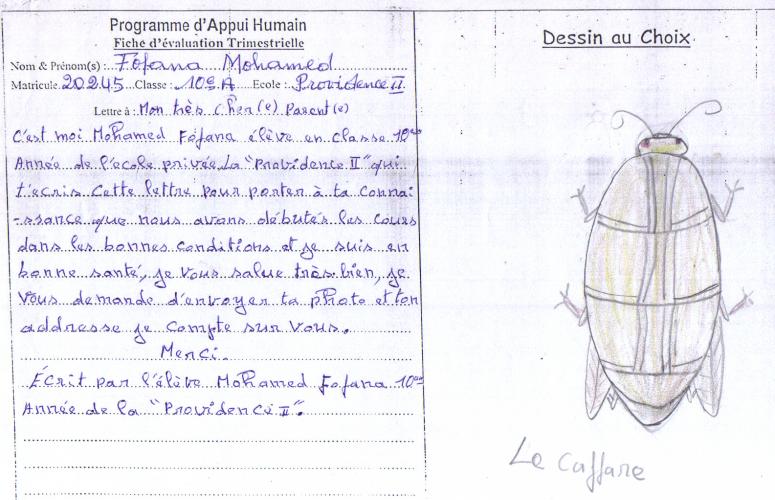 Programme d'Appui Humain
Fiche d'évaluation Trimestrielle
Nom & Prénom(s) : Fofana Mohamed
Matricule 20245 Classe : 10e A Ecole : Providence II
Lettre à : Mon très cher(e) Parent(e)
C'est moi Mohamed Fofana élève en classe 10ème
Année de l'école privée La "Providence II" qui
t'écris cette lettre pour porter à ta connai-
-ssance que nous avons débutés les cours
dans les bonnes conditions et je suis en
bonne santé, je vous salue très bien, je
vous demande d'envoyer ta photo et ton
addresse je compte sur vous.
Merci.
Écrit par l'élève Mohamed Fofana 10ème
Année de la "Providence II".
Dessin au Choix
Le Caffare